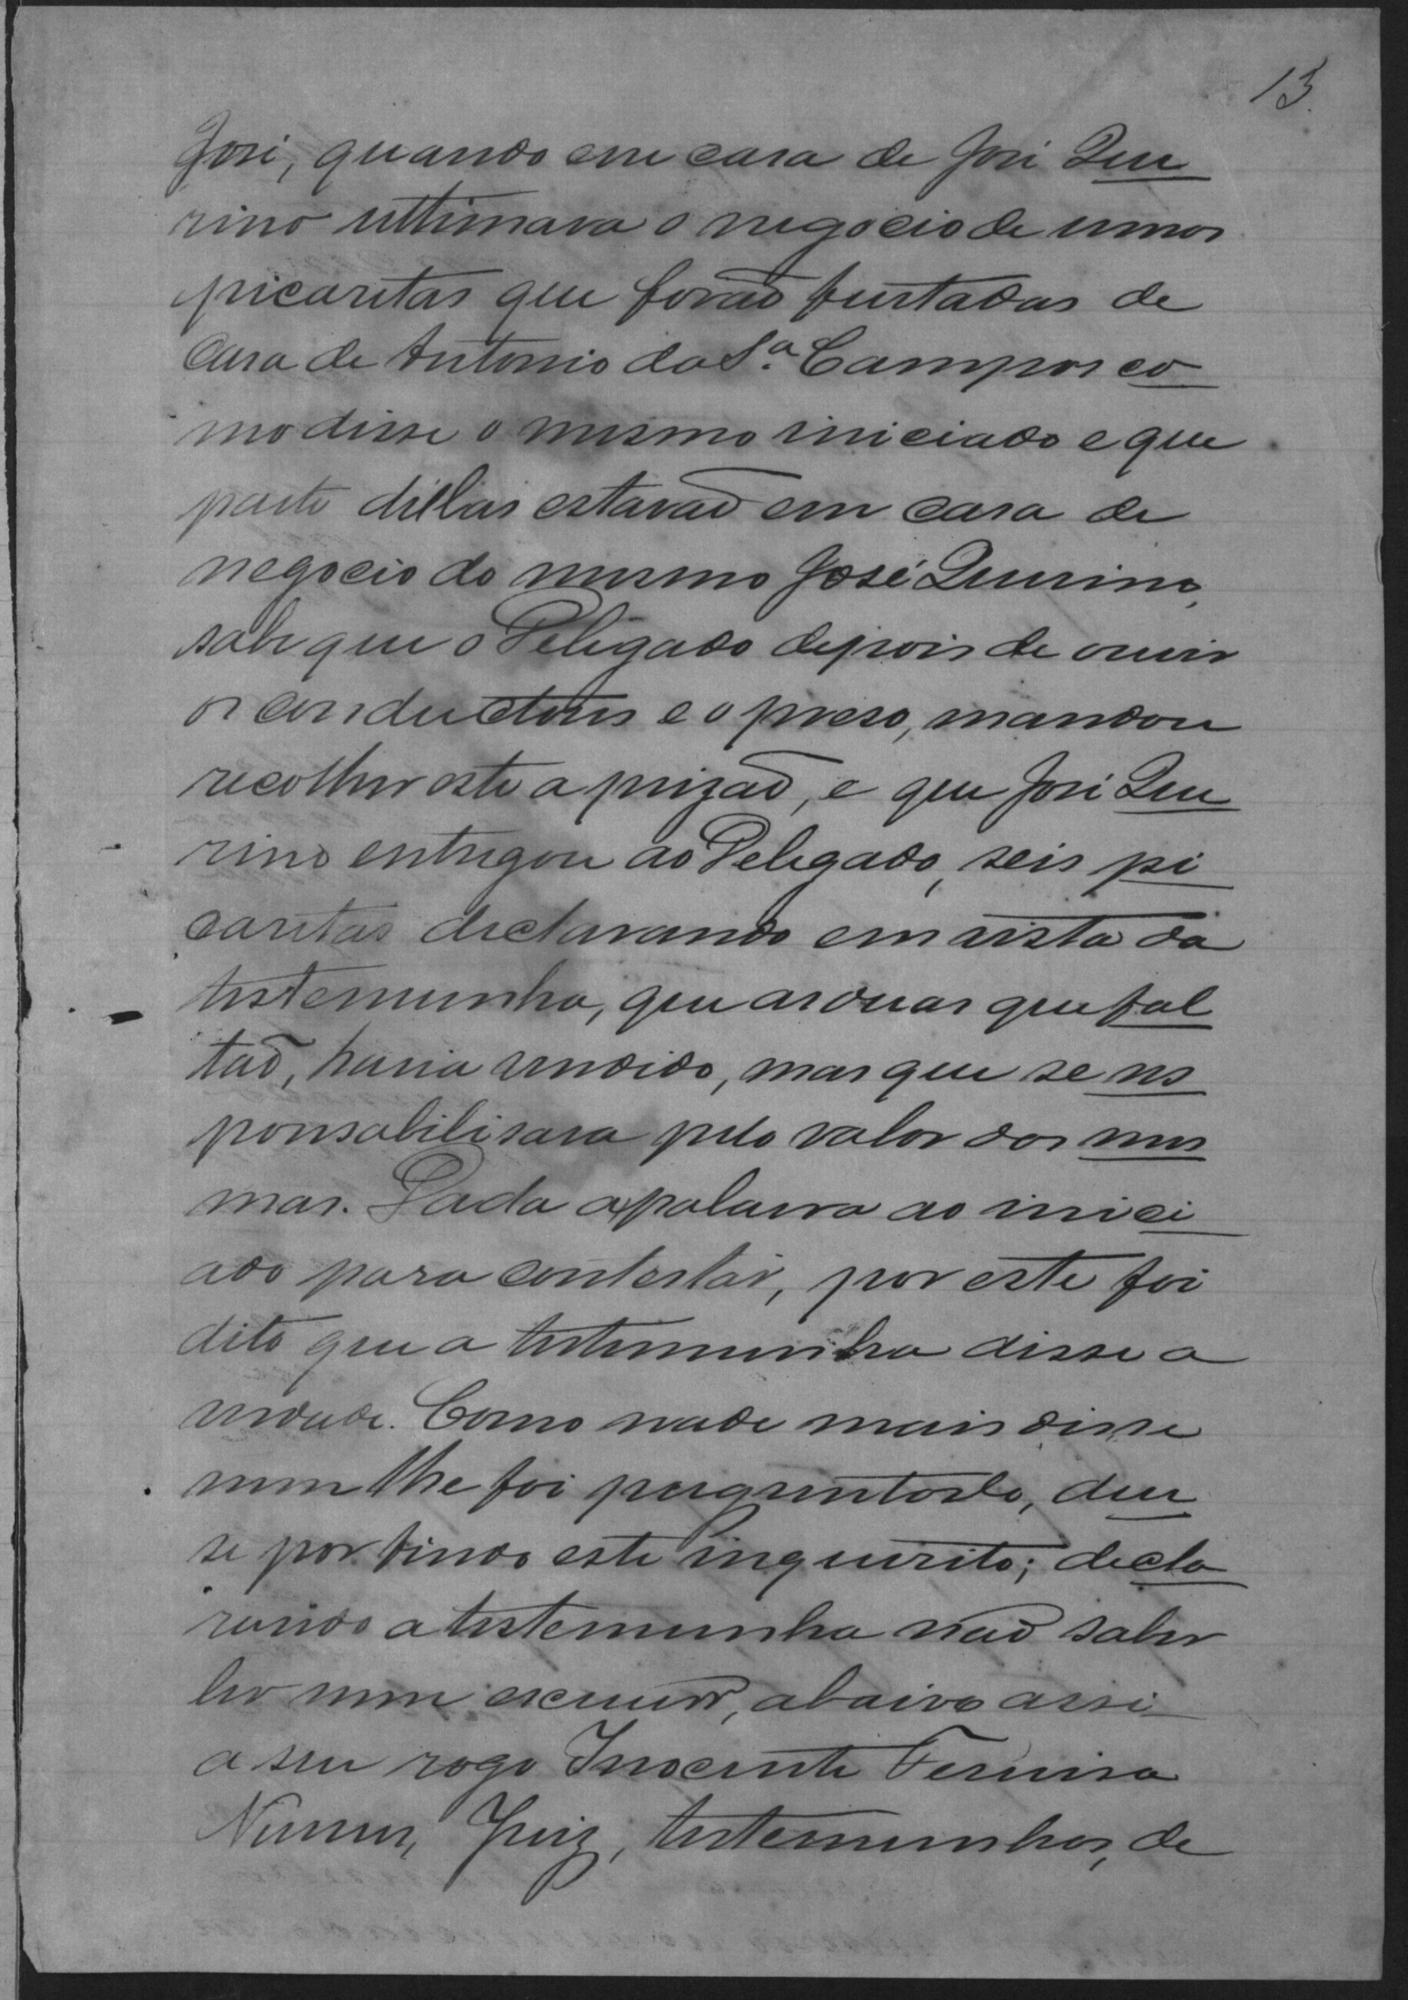 13.
José, quando em casa de José Qui
rino ultimava o negocio de umas
picaretas que forão furtadas de
casa de Antonio da S.ª Campos co
mo disse o mesmo iniciado e que
parte dellas estavão em casa de
negocio do mesmo José Quirino,
sabe que o Delegado depois de ouvir
os conductores e o preso, mandou
recolher este a prizão, e que José Qui
rino entregou ao Delegado, seis pi
caretas declarando em vista da
testemunha, que as duas que fal
tão, havia vendido, mas que se res
ponsabilisava pelo valor das mes
mas. Dada a palavra ao inici
ado para contestar, por este foi
dito que a testemunha disse a
verdade. Como nade mais disse
nem lhe foi perguntado, deu
se por findo este inquerito; decla
rando a testemunha não saber
ler nem escrever, abaixo assi
a seu rogo Inocente Ferreira
Nunes, Juiz, testemunhas, de